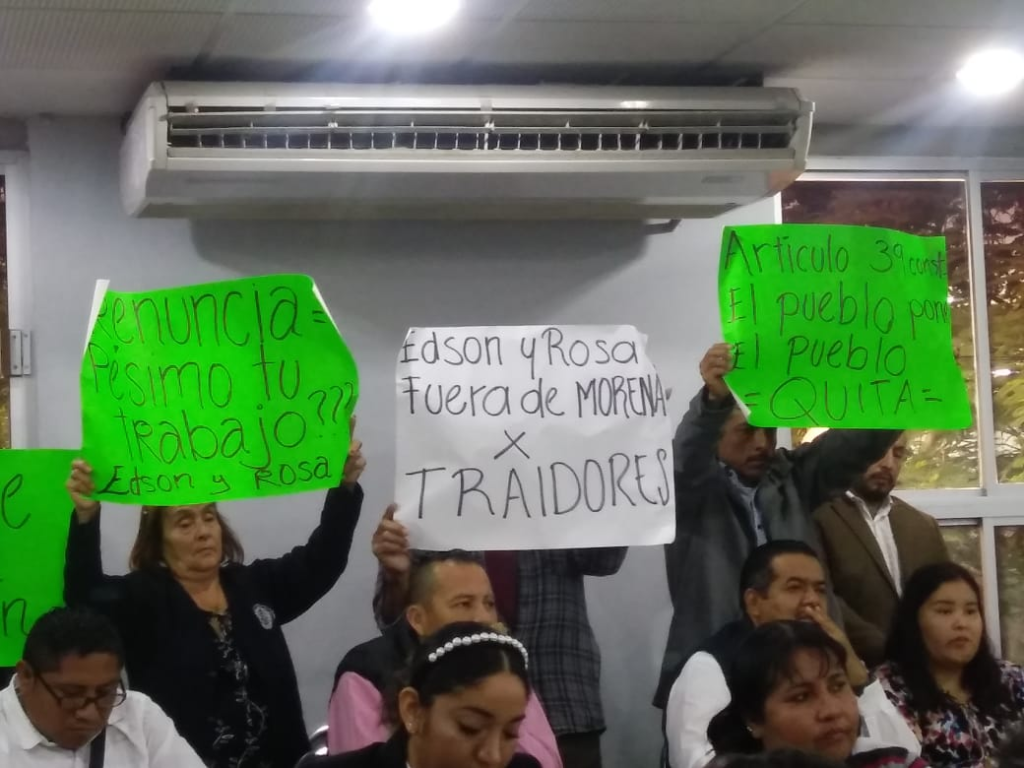 Renuncia=
Pésimo tu
trabajo???
Edson y Rosa
Edson y Rosa
Fuera de MORENA
X
TRAIDORES
Articulo 39 const.
El pueblo pone
El pueblo
=QUITA=
e
n